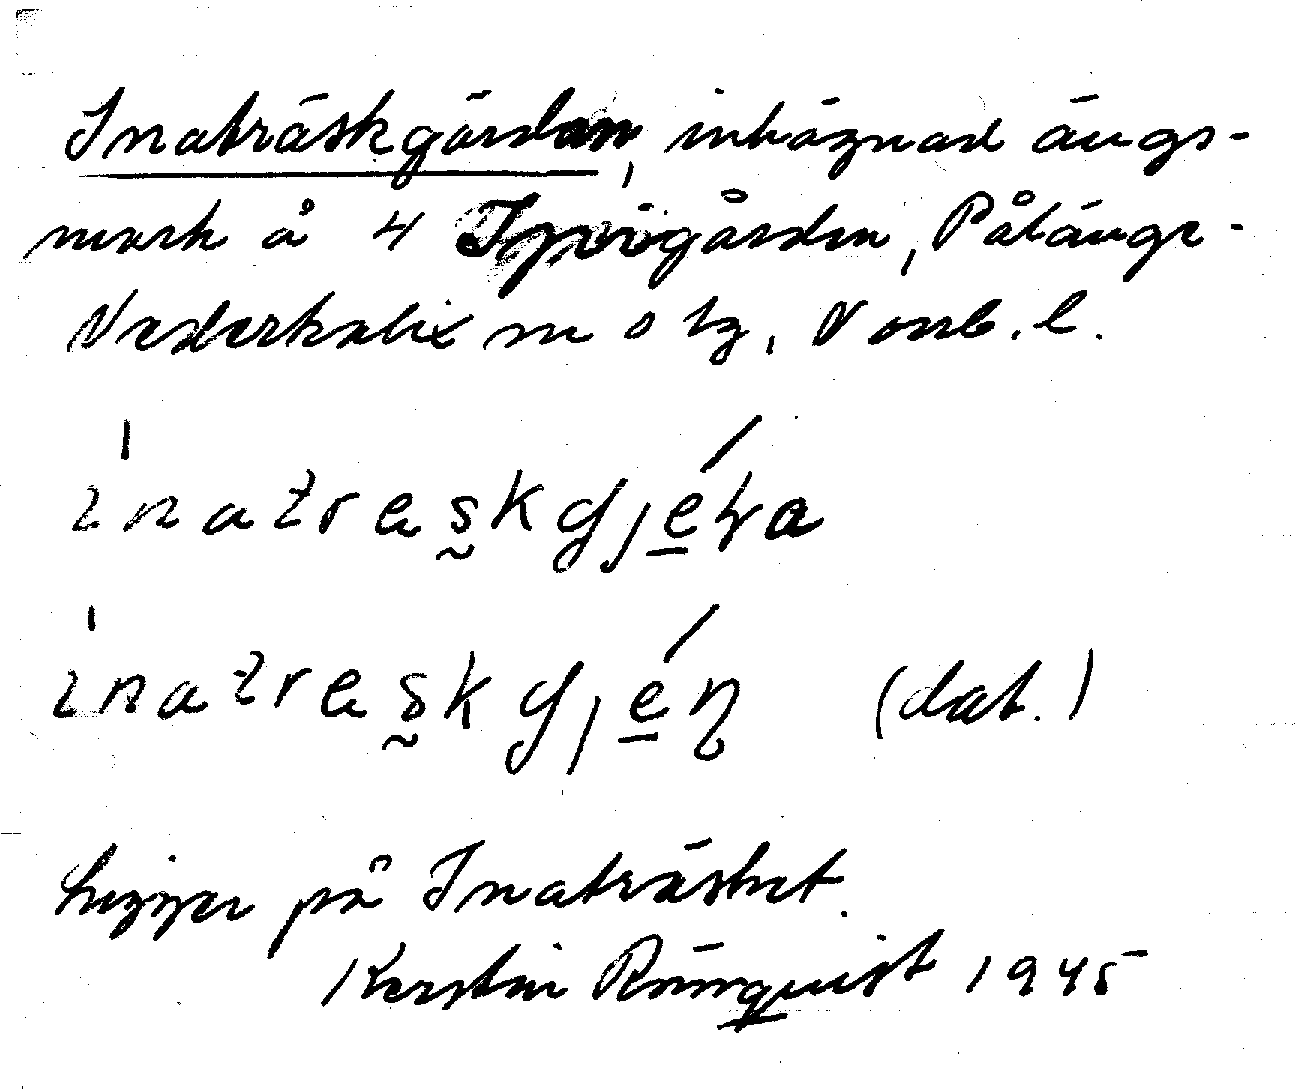 Inaträskgärdan, inhägnad ängs-
mark å 4 Spörgården, Pålänge -
Nederkalix sn o tg, Norrb. l.
inatreskgjéra
inatreskgjén (dat.)
ligger på Inaträsket.
Kerstin Rönnquist 1945